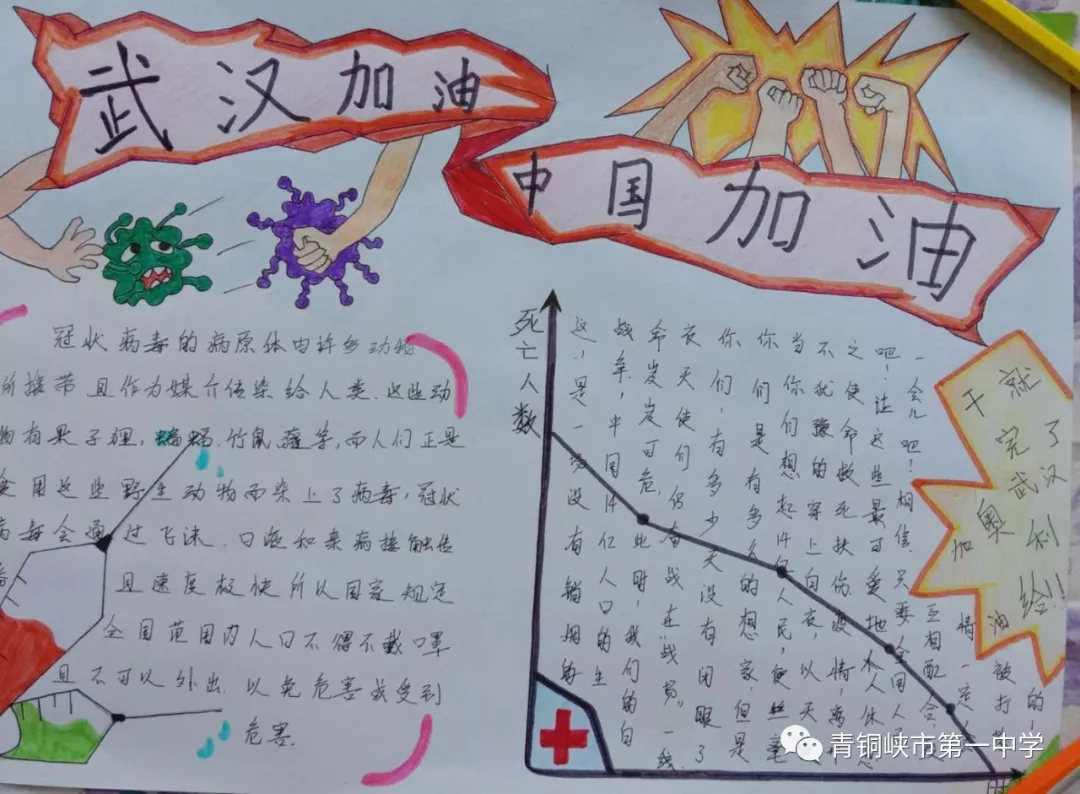 武汉加油
中国加油
冠状病毒的病原体由许多动物
所携带且作为媒介传染给人类.这些动
物有果子狸,蝙蝠,竹鼠,獾等,而人们正是
食用这些野生动物而染上了病毒,冠状
病毒会通过飞沫,口液和亲病接触传
播 且速度极快所以国家规定
全国范围内人口不得不戴口罩
且不可以外出.以免危害或受到
危害.
死亡人数
这,是一场没有销烟的
战争,中国14亿人口的生
命岌岌可危,此时,我们的白
衣天使们仍奋战在"战场"一线.
你们,有多少天没有闭眼了
你们是有多么的想家,但是
当你们想起14亿人民,便丝毫
不犹豫的穿上白衣,以天
之使命救死扶伤,疫情,离
吧!让这些最可爱地人休息
一会儿吧!相信,只要全国人
互相配合,疫
情一定
被打
的
干就
完了
武汉
加油
奥利给!!
青铜峡市第一中学